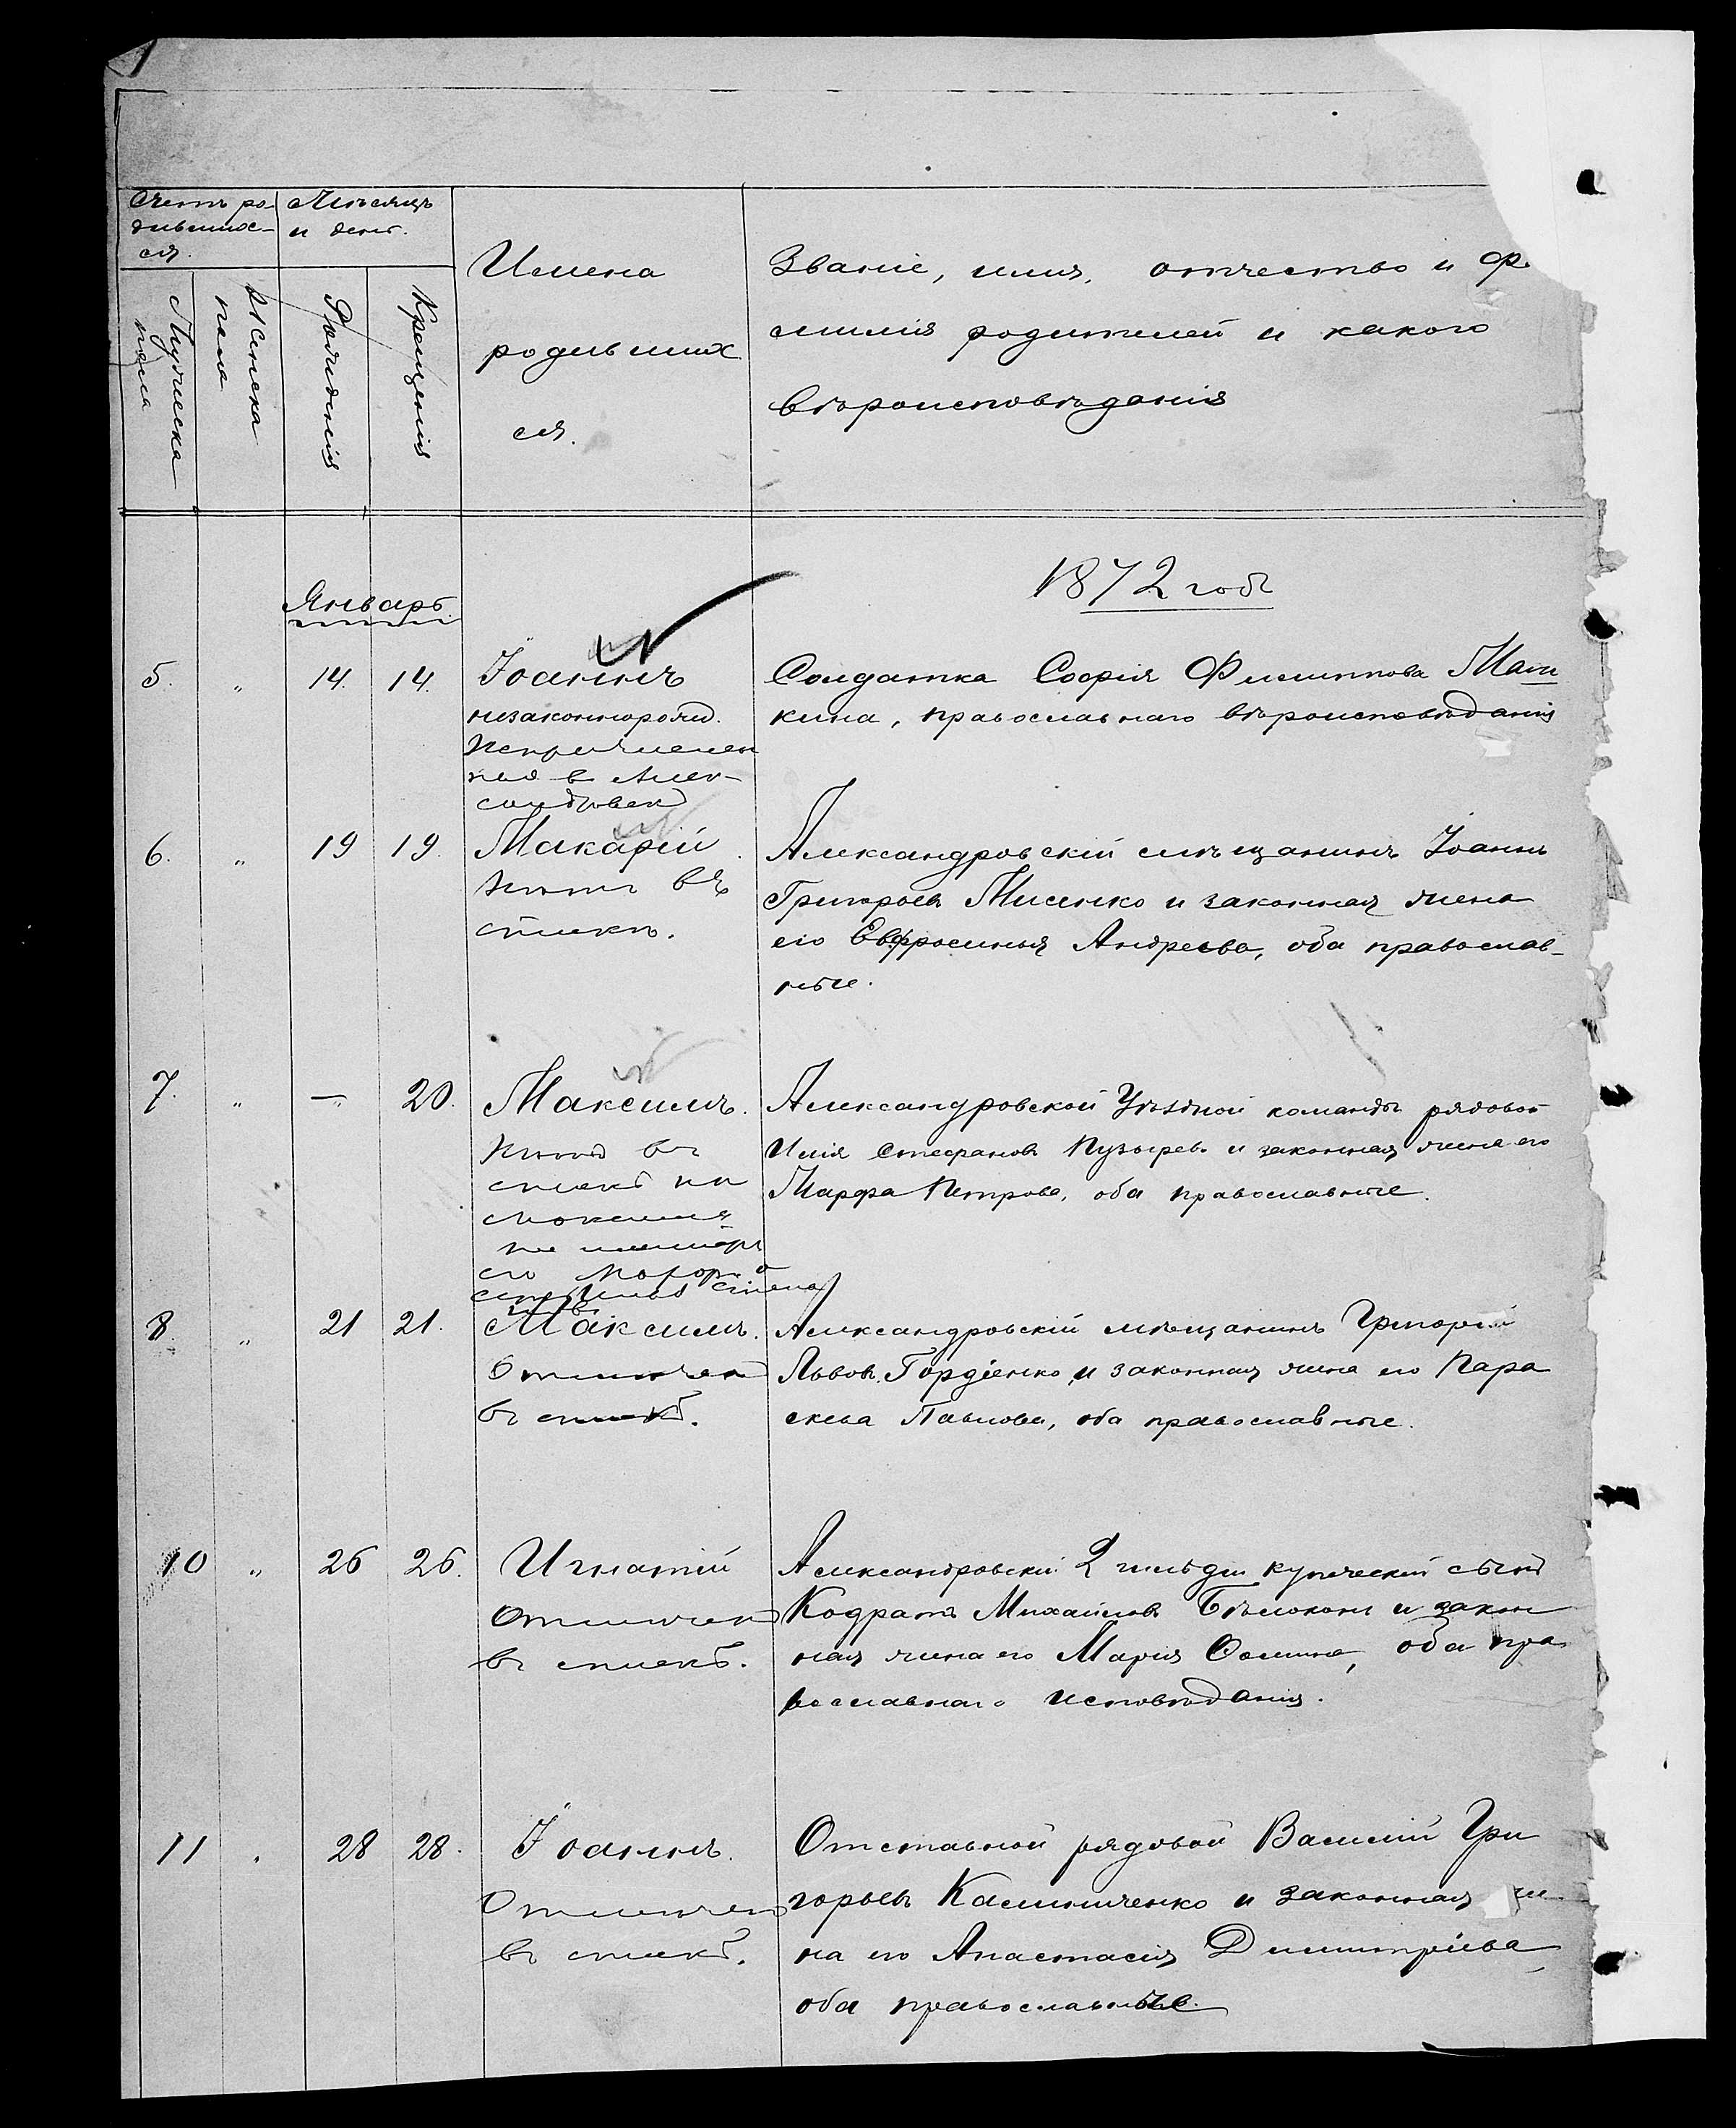 Счетъ ро-
дившихс-
ся.
Мѣсяцъ
и день.
Мужеска
пола
Женска
пола
Рожденія
Крещенія
Имена
родивших
ся.
Званіе, имя, отчество и Фа
милія родителей и какого
вѣроисповѣданія
1872 годъ
Январь
5. " 14. 14. Іоаннъ
незаконнорожд.
Неприписан
сандровскѣ
Солдатка Софія Филиппова Мат
кина, православнаго вѣроисповѣданія
6. " 19 19. Макарій
Нѣтъ въ
спискѣ.
Александровскій мѣщанинъ Іоаннъ
Григорьевъ Мисенко и законная жена
его Евфросинья Андреева, оба православ-
ные.
7. " — 20. Максимъ.
Нѣтъ въ
спискѣ
Александровской Уѣздной команды рядовой
Илія Стефановъ Пузыревъ и законная жена его
Марфа Петрова, оба православные.
8. " 21 21. Максимъ.
Отмѣчен
въ спискѣ.
Александровскій мѣщанинъ Григорій
Львовъ Гордіенко и законная жена его Пара
скева Павлова, оба православные.
10 " 26 26. Игнатій
Отмѣчен
въ спискѣ.
Александровскій 2 гильдіи купеческій сынъ
Кодратъ Михайловъ Бѣлоконь и закон
ная жена его Марія Фомина, оба пра
вославнаго исповѣданія.
11 " 28 28. Іоаннъ.
Отмѣчен
въ спискѣ.
Отставной рядовой Василій Гри
горьевъ Калиниченко и законная же
на его Анастасія Димитріева,
оба православные.